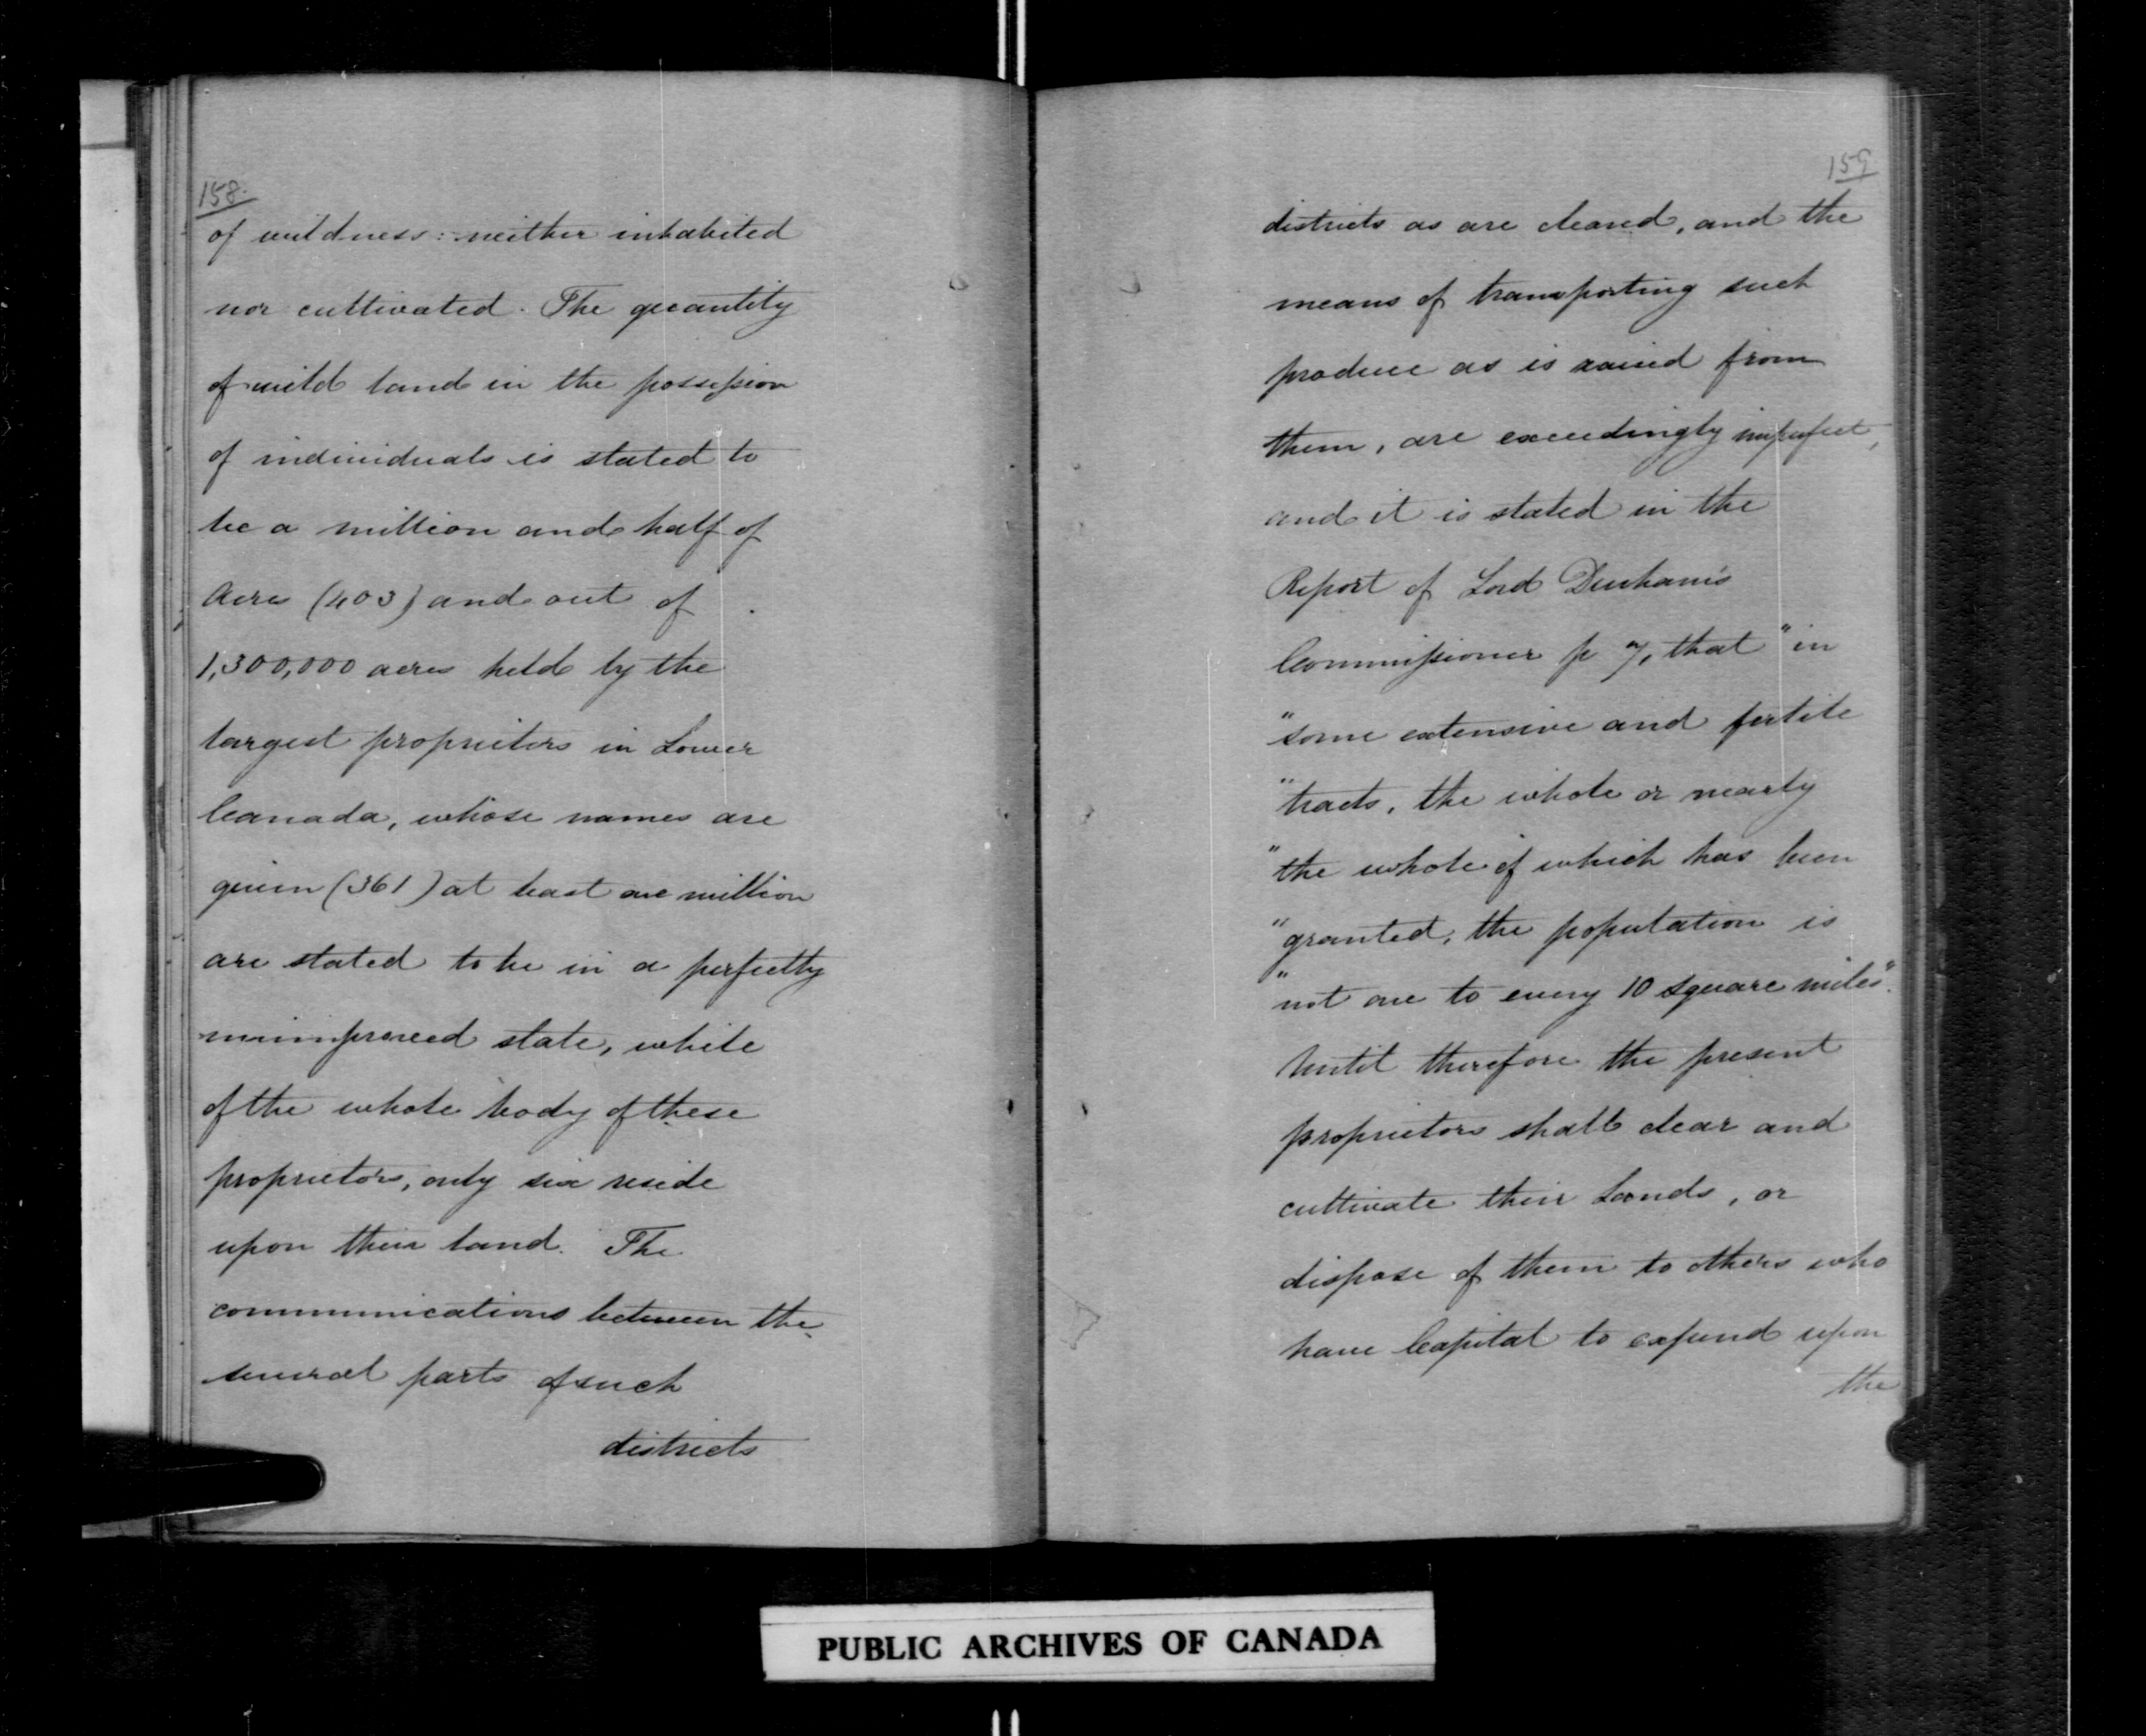 158.
of wildness: neither inhabited
nor cultivated. The quantity
of wild land in the possession
of individuals is stated to
be a million and half of
Acres (403) and out of
1,300,000 acres held by the
largest proprietors in Lower
Canada, whose names are
given (361) at least one million
are stated to be in a perfectly
unimproved state, while
of the whole body of these
proprietors, only six reside
upon their land. The
communications between the
several parts of such
districts
159
districts as are cleared, and the
means of transporting such
produce as is raised from
them, are exceedingly imperfect,
and it is stated in the
Report of Lord Durham's
Commissioner p 7, that "in
"some extensive and fertile
"tracts, the whole or nearly
"the whole of which has been
"granted, the population is
"not one to every 10 square miles".
Until therefore the present
proprietors shall clear and
cultivate their Lands, or
dispose of them to others who
have Capital to expend upon
the
PUBLIC ARCHIVES OF CANADA